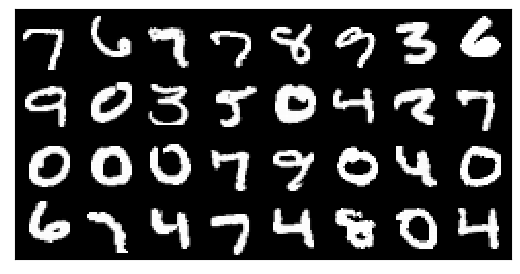 7 6 9 7 8 9 3 6
9 0 3 5 0 4 2 7
0 0 0 7 9 0 4 0
6 7 4 7 4 8 0 4